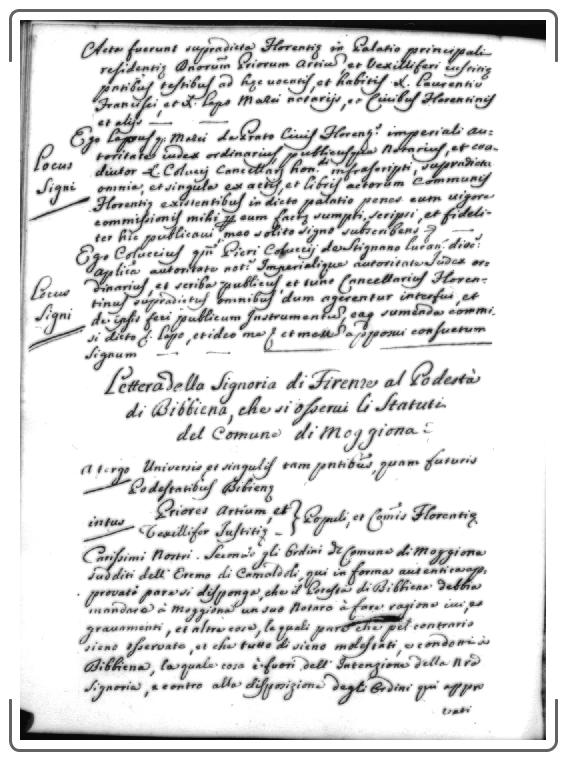 Acta fuerunt supradicta Florentię in Palatio principali
residentię Dnorum Priorum Artiū, et Vexilliferi iustitię
pntibus testibus ad hęc vocatis, et habitis S. Laurentio
Francisci, et S. Lapo Mazei notarijs, et Civibus Florentinis
et alijs
Ego Lapus q. Mazei de Prato Civis Florens imperiali au-
toritate iudex ordinarius, publicusque Notarius, et coa-
diutor S. Colucij Cancellarij hon. infrascripti, supradicta
omnia, et singula ex actis, et libris actorum Communis
Florentię existentibus in dicto palatio penes eum vigore
commissionis mihi per eum factę sumpsi, scripsi, et fideli-
ter hic publicavi, meo solito signo subscribens
Locus
Signi
Ego Coluccius qm Pieri Coluccij de Stignano Lucan. dioc.
aplica autoritate not. Imperialique autoritate Iudex or-
dinarius, et scriba publicus, et tunc Cancellarius Floren-
tinus supradictus omnibus dum agerentur interfui, et
de ipsis feci publicum Instrumentū, eaq sumenda commi-
si dicto S. Lapo, et ideo me et apposui consuetum
Signum
Locus
Signi
Lettera della Signoria di Firenze al Podestà
di Bibbiena, che si osserui li Statuti
del Comune di Moggiona
A tergo Universis et singulis tam pntibus, quam futuris
Podestatibus Bibienę
intus Priores Artium, et
Vexillifer Iustitię } Populi, et Cois Florentię
Carissimi Nostri. Secondo gli Ordini del Comune di Moggiona
sudditi dell' Eremo di Camaldoli, qui in forma autentica ap-
provati pare si disponga, che il Potestà di Bibbiena debba
mandare à Moggiona un suo Notaro à fare ragione ivi, et
gravamenti, et altre cose, le quali pare che pel contrario
sieno osservate, et che tutto dì sieno molestati, e condotti à
Bibbiena, la quale cosa è fuori dell' Intenzione della Nra
Signoria, e contro alla disposizione degli Ordini qui appro
vati